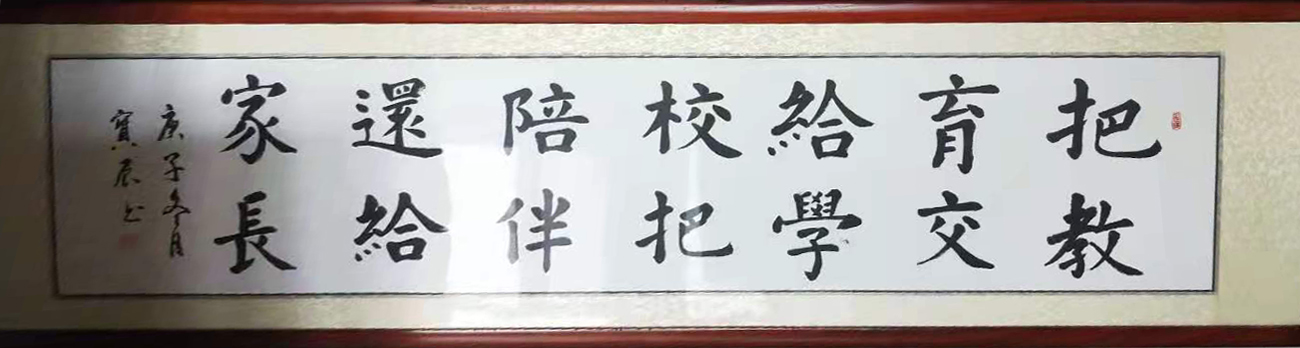 把教
育交
給學
校把
陪伴
還給
家長
庚子冬月
寶辰书